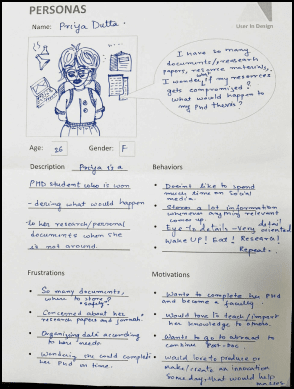 PERSONAS
User in Design
Name: Priya Dutta.
I have so many
documents/research
papers, resource materials,
I wonder, what if my resources
gets compromised?
What would happen to
my PhD thesis?
Age: 26 Gender: F
Description Priya is a
PHD student who is won
-dering what would happen
to her research/personal
documents when she
is not around.
Behaviors
• Doesnt like to spend
much time on social
media.
• Stores a lot information
whenever anything relevant
comes up.
• Eye-to details - very detail oriented
Wake UP! Eat! Research!
Repeat.
Frustrations
• So many documents,
where to store? safety?
• Concerned about her
research papers and journals.
• Organizing data according
to her needs.
• Wondering she could complete
her PhD in time.
Motivations
• Wants to complete her PhD
and become a faculty.
• Would love to teach/impart
her knowledge to others.
• Wants to go abroad to
continue Post-Doc.
• Would love to produce or
make/create an innovation
someday, that would help